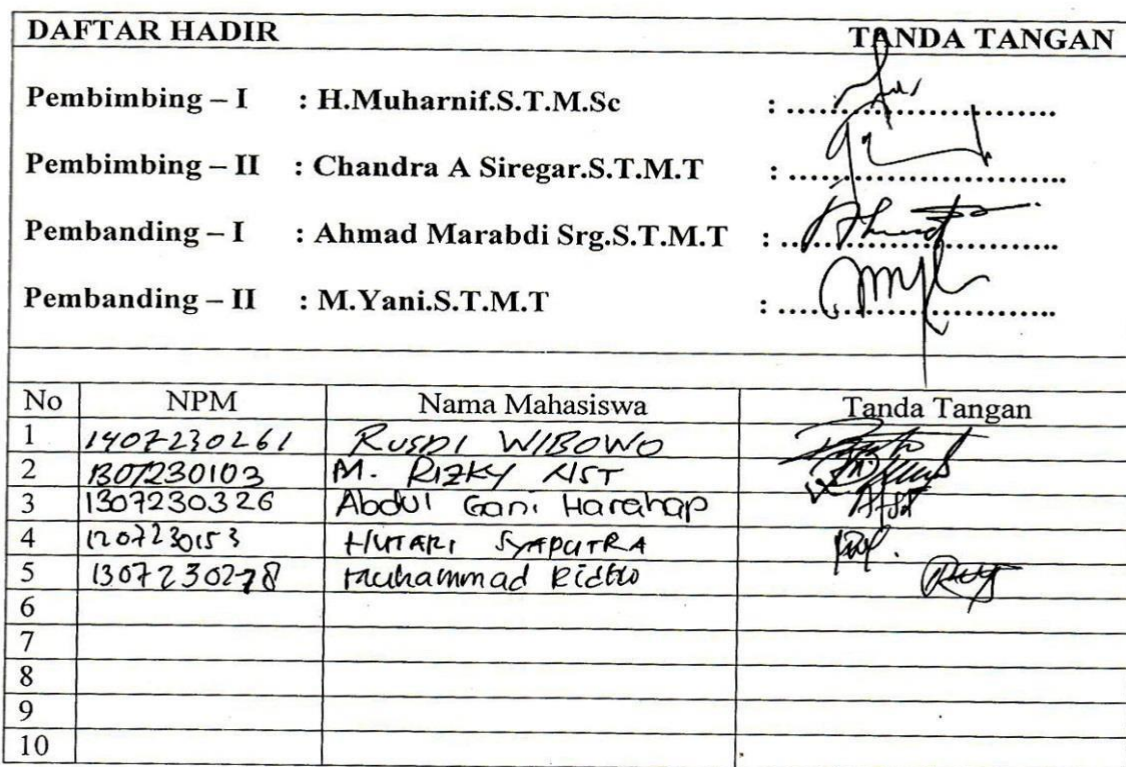 DAFTAR HADIR TANDA TANGAN
Pembimbing – I : H.Muharnif.S.T.M.Sc : ............................
Pembimbing – II : Chandra A Siregar.S.T.M.T : ............................
Pembanding – I : Ahmad Marabdi Srg.S.T.M.T : ............................
Pembanding – II : M.Yani.S.T.M.T : ............................
No NPM Nama Mahasiswa Tanda Tangan
1 1407230261 RUSDI WIBOWO
2 1307230103 M. RIZKY NST
3 1307230326 Abdul Gani Harahap
4 1207230153 HUTARI SYAPUTRA
5 1307230278 Muhammad Ridho
6
7
8
9
10